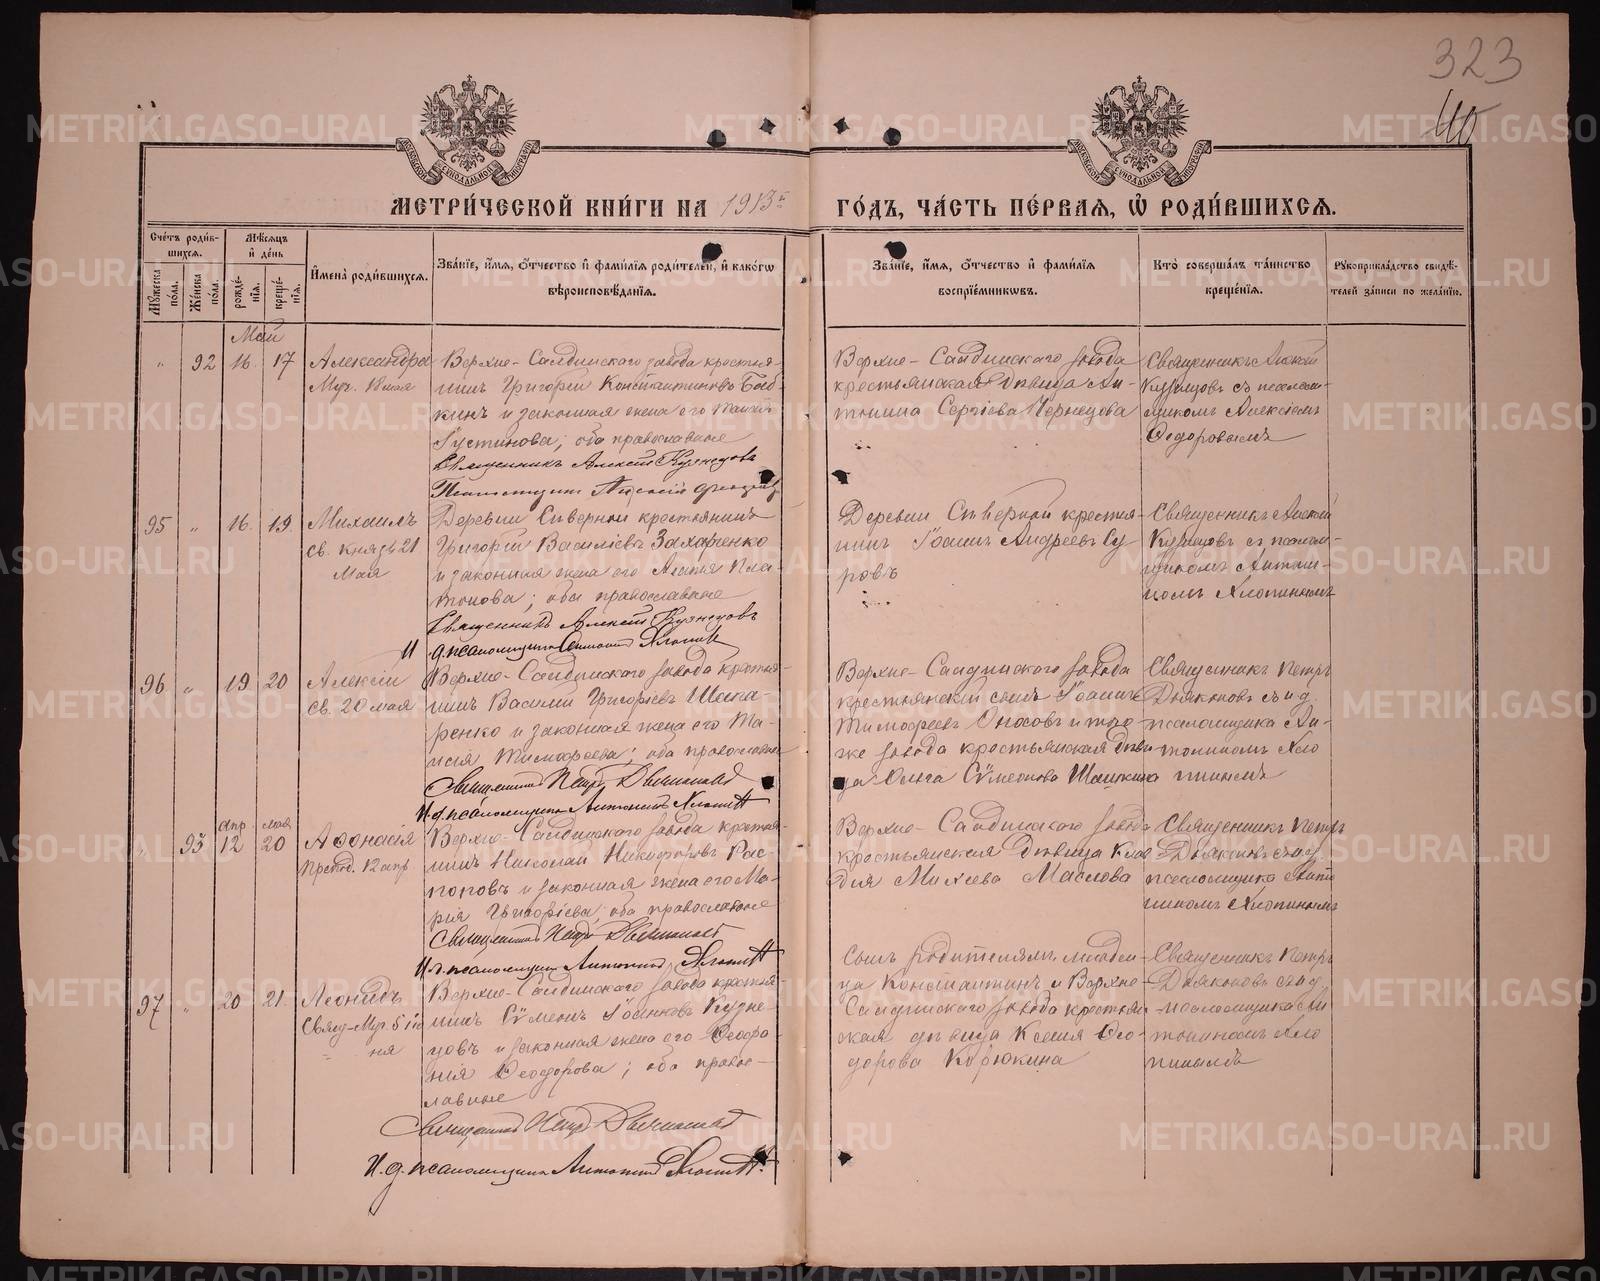 323
40
МЕТРИ́ЧЕСКОЙ КНИ́ГИ НА 1913 ГО́ДЪ, ЧА́СТЬ ПЕ́РВАЯ, Ѽ РОДИ́ВШИХСЯ.
Сче́тъ роди́вшихся.
Мꙋжеска по́ла.
Же́нска по́ла.
Мѣ́сяцъ и҆ де́нь
рожде́нїя.
креще́нїя.
И҆мена̀ роди́вшихся.
Зва́нїе, и҆́мя, ѻ҆́тчество и҆ фами́лїя роди́телей, и҆ како́гѡ
вѣроисповѣ́данїя.
Зва́нїе, и҆́мя, ѻ҆́тчество и҆ фами́лїя
воспрїе́мникѡвъ.
Кто̀ соверша́лъ та́инство
креще́нїя.
Рꙋкоприкла́дство свидѣ́-
телей за́писи по жела́нїю.
Май
" 92 16. 17
Александра
Муч. 18 мая
Верхне-Салдинскаго завода крестья-
нинъ Григорій Константиновъ
и законная жена его
Густинова; оба православные
Священникъ Алексій Кузнецовъ
Верхне-Салдинскаго завода
крестьянская дѣвица Ан-
тонина Сергіева Чернецова
Священникъ Алексій
Кузнецовъ съ псалом-
щикомъ Алексіемъ
Ѳедоровымъ
95 " 16. 19
Михаилъ
св. князь 21
Мая
Деревни Сѣверной крестьянинъ
Григорій Василіевъ Захарченко
и законная жена его Агафія Пла-
тонова; оба православные
Священникъ Алексій Кузнецовъ
И.д. псаломщика Антоній Хлопинъ
Деревни Сѣверной крестья-
нинъ Іоаннъ Андреевъ Су
ровъ
Священникъ Алексій
Кузнецовъ съ псалом-
щикомъ Антони-
номъ Хлопинымъ
96 " 19 20
Алексій
Св. 20 мая
Верхне-Салдинскаго завода крестья-
нинъ Василій Григоріевъ Шата-
ренко и законная жена его Та-
исія Тимоѳеева; оба православные
Священникъ Петръ Дьяконовъ
И.д. псаломщика Антонинъ Хлопинъ
Верхне-Салдинскаго завода
крестьянскій сынъ Іоаннъ
Тимоѳеевъ Оносовъ и того
же завода крестьянская дѣви
ца Ольга Сѵмеонова Шашкина
Священникъ Петръ
Дьяконовъ съ и.д.
псаломщика Ан-
тониномъ Хло
пинымъ
апр мая
" 93 12 20
Аѳанасія
Препод. 12 апр
Верхне-Салдинскаго завода крестья-
нинъ Николай Никифоровъ Рас-
поповъ и законная жена его Ма-
рія Григоріева; оба православные
Священникъ Петръ Дьяконовъ
И.д. псаломщика Антонинъ Хлопинъ
Верхне-Салдинскаго завода
крестьянская дѣвица Клав-
дія Михеева Маслова
Священникъ Петръ
Дьяконовъ съ и.д.
псаломщика Анто
ниномъ Хлопинымъ
97 " 20 21.
Леонидъ
Свящ-Муч. 5 Ію
ня
Верхне-Салдинскаго завода крестья-
нинъ Сѵменъ Іоанновъ Кузне-
цовъ и законная жена его Ѳеофа-
нія Ѳеодорова; оба право-
славные
Священникъ Петръ Дьяконовъ
И.д. псаломщика Антонинъ Хлопинъ.
Сынъ родителямъ младен-
ца Константинъ и Верхне-
Салдинскаго завода крестьян-
ская дѣвица Ксенія Ѳео-
дорова Корюкина
Священникъ Петръ
Дьяконовъ съ и.д.
псаломщика Ан-
тониномъ Хло
пинымъ